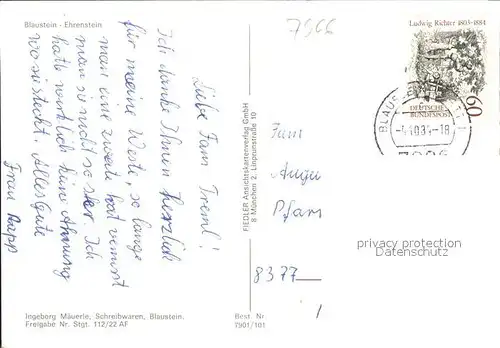 Blaustein - Ehrenstein
7966
Liebe Fam Treml!
Ich danke Ihnen herzlich
für meine Weste, so lange
man eine zweite hat vermisst
man so nicht so sehr. Ich
hatte wirklich keine Ahnung
wo sie steckt. Alles Gute
Frau Rapp
Ingeborg Mäuerle, Schreibwaren, Blaustein.
Freigabe Nr. Stgt. 112/22 AF
Best. Nr
7901/101
FIEDLER Ansichtskartenverlag GmbH
8 München 2, Linprunstraße 10
Ludwig Richter 1803-1884
DEUTSCHE
BUNDESPOST
60
BLAUSTEIN
-18
Fam
Pfarr
8377
privacy protection
Datenschutz